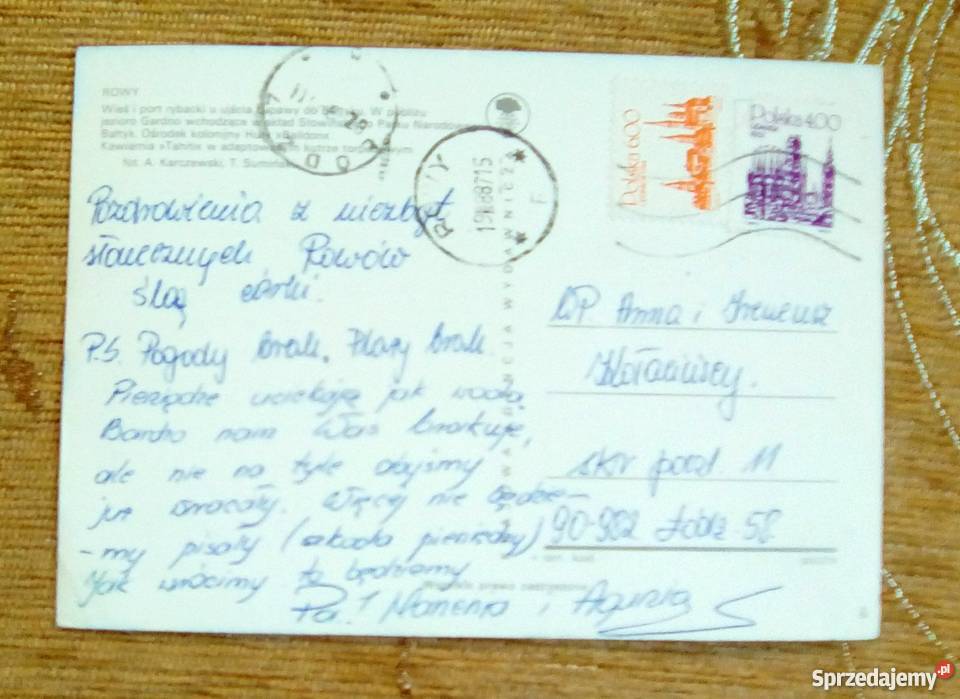 ROWY
Wieś i port rybacki u ujścia Łupawy do Bałtyku. W pobliżu
jezioro Gardno wchodzące w skład Słowińskiego Parku Narodowego
Bałtyk. Ośrodek kolonijny Huty »Baildon«
Kawiarnia »Tahiti« w adaptowanym kutrze
fot. A. Karczewski, T. Sumiński
Polska 6.00
Polska 4.00
19 88 15
Pozdrowienia z niezbyt
słonecznych Rowów
ślą córki.
P.S. Pogody brak, Plaży brak.
Pieniądze uciekają jak woda
Bardzo nam Was brakuje,
ale nie na tyle abyśmy
już wracały. Więcej nie będzie-
-my pisały (szkoda pieniędzy)
Jak wrócimy to będziemy
Pa! Marzena i Agnisia
WP Anna i Ireneusz
skr poczt. 11
90-982 Łódź 58
KRAJOWA AGENCJA WYDAWNICZA
Sprzedajemy.pl